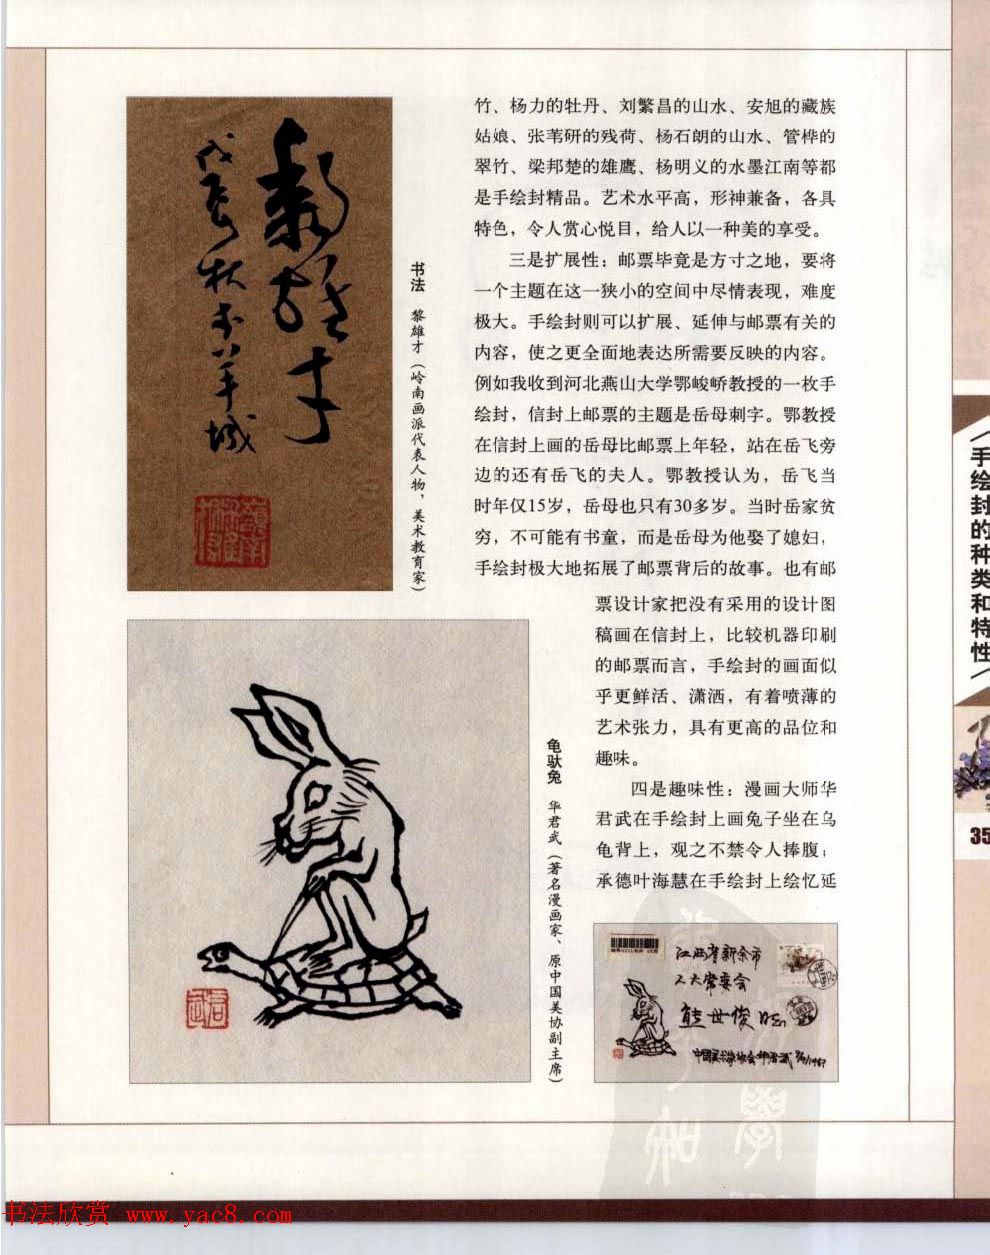 竹、杨力的牡丹、刘繁昌的山水、安旭的藏族
姑娘、张苇研的残荷、杨石朗的山水、管桦的
翠竹、梁邦楚的雄鹰、杨明义的水墨江南等都
是手绘封精品。艺术水平高，形神兼备，各具
特色，令人赏心悦目，给人以一种美的享受。
三是扩展性：邮票毕竟是方寸之地，要将
一个主题在这一狭小的空间中尽情表现，难度
极大。手绘封则可以扩展、延伸与邮票有关的
内容，使之更全面地表达所需要反映的内容。
例如我收到河北燕山大学鄂峻峤教授的一枚手
绘封，信封上邮票的主题是岳母刺字。鄂教授
在信封上画的岳母比邮票上年轻，站在岳飞旁
边的还有岳飞的夫人。鄂教授认为，岳飞当
时年仅15岁，岳母也只有30多岁。当时岳家贫
穷，不可能有书童，而是岳母为他娶了媳妇，
手绘封极大地拓展了邮票背后的故事。也有邮
票设计家把没有采用的设计图
稿画在信封上，比较机器印刷
的邮票而言，手绘封的画面似
乎更鲜活、潇洒，有着喷薄的
艺术张力，具有更高的品位和
趣味。
四是趣味性：漫画大师华
君武在手绘封上画兔子坐在乌
龟背上，观之不禁令人捧腹；
承德叶海慧在手绘封上绘忆延
黎雄才
戊辰秋于羊城
书法 黎雄才（岭南画派代表人物，美术教育家）
龟驮兔 华君武（著名漫画家、原中国美协副主席）
江西省新余市
人大常委会
熊世俊
中国美术家协会 华君武
手绘封的种类和特性
35
书法欣赏 www.yac8.com